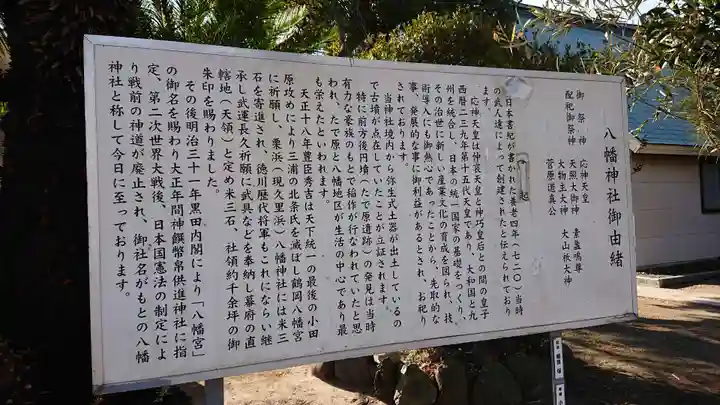 八幡神社御由緒
御祭神 応神天皇
配祀御祭神 天照大御神 素盞鳴尊
大物主大神 大山祇大神
菅原道真公
日本書紀が書かれた養老四年(七二〇)当時
の武人達によって創建されたと伝えられており
ます。
応神天皇は仲哀天皇と神巧皇后との間の皇子
西暦二三九年第十五代天皇であり、大和国と九
州を統合し、日本の統一国家の基礎をつくり、
その治世に新しい産業文化の育成を図られ、技
術導入にも御熱心であったことから、先取的な
事、発展的な事に御利益があるとされ、お祀り
されております。
当神社境内から弥生式土器が出土しているの
で古墳が点在していたことが立証されます。
特に前方後円墳(たで原遺跡)の発見は当時
有力な豪族のもとで稲作が行なわれていたと思
われ、たで原と八幡地区が生活の中心であり最
も栄えたといわれます。
天正十八年豊臣秀吉は天下統一の最後の小田
原攻めにより三浦の北条氏を滅ぼし鶴岡八幡宮
に祈願し、栗浜(現久里浜)八幡神社には米三
石を寄進され、徳川歴代将軍もこれにならい継
承し武運長久祈願に武具などを奉納し幕府の直
轄地(天領)と定め米三石、社領約千余坪の御
朱印を賜わりました。
その後明治三十一年黒田内閣により「八幡宮」
の御名を賜わり大正年間神饌幣帛供進神社に指
定、第二次世界大戦後、日本国憲法の制定によ
り戦前の神道が廃止され、御社名がもとの八幡
神社と称して今日に至っております。